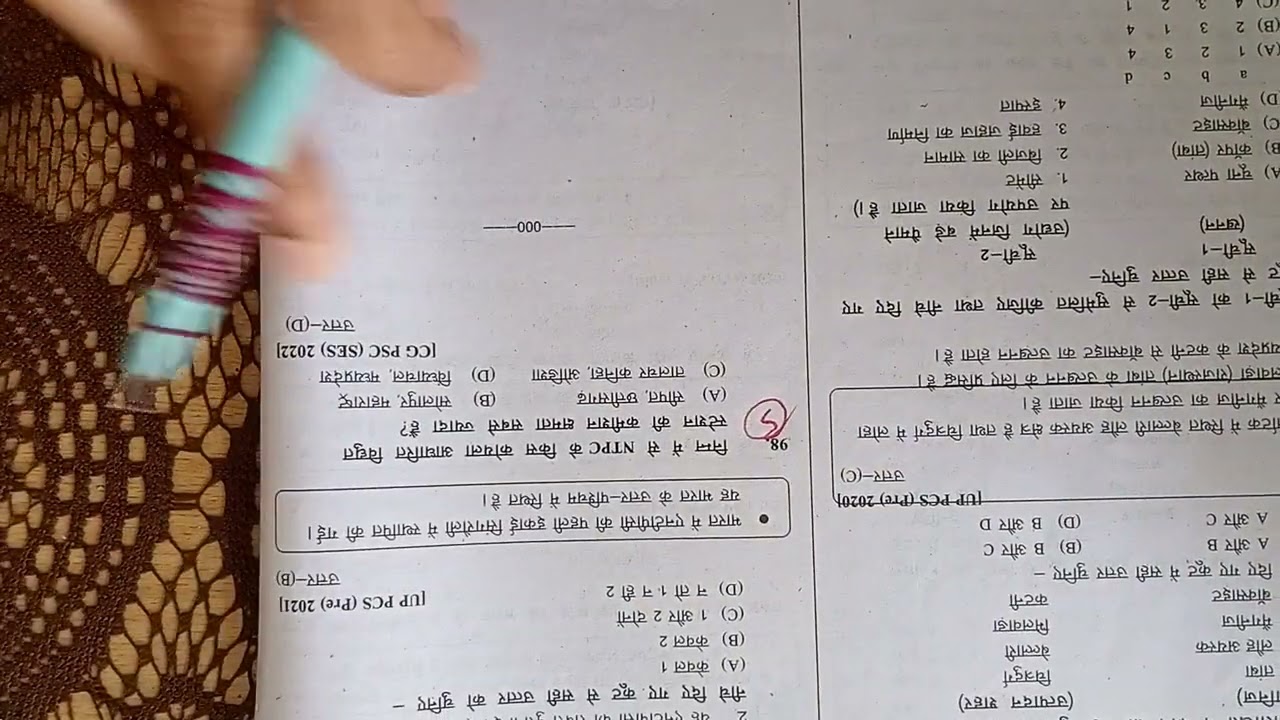 (उत्पादन शहर)
तांबा चित्रदुर्ग
लौह अयस्क बेल्लारी
मैंगनीज भिलवाड़ा
बॉक्साइट कटनी
दिए गए कूट, में सही उत्तर चुनिए –
A और B (B) B और C
A और C (D) B और D
[UP PCS (Pre) 2020]
उत्तर–(C)
में स्थित बेल्लारी लौह अयस्क क्षेत्र है तथा चित्रदुर्ग में लोहा
मैंगनीज का उत्खनन किया जाता है।
(राजस्थान) तांबा के उत्खनन के लिए प्रसिद्ध है
के कटनी से बॉक्साइट का उत्खनन होता है।
को सूची-2 से सुमेलित कीजिए तथा नीचे दिए गए
से सही उत्तर चुनिए–
सूची-1 सूची-2
(खनन) (उद्योग जिनमें बड़े पैमाने
पर उपयोग किया जाता है।)
A) चूना पत्थर 1. सीमेंट
B) कॉपर (तांबा) 2. बिजली का सामान
C) बॉक्साइट 3. हवाई जहाज का निर्माण
D) मैंगनीज 4. इस्पात
a b c d
(A) 1 2 3 4
(B) 2 3 1 4
(C) 4 3 2 1
नीचे दिए गए कूट से सही उत्तर को चुनिए –
(A) केवल 1
(B) केवल 2
(C) 1 और 2 दोनों
(D) न तो 1 न ही 2
[UP PCS (Pre) 2021]
उत्तर–(B)
• भारत में एनटीपीसी की पहली इकाई सिंगरौली में स्थापित की गई।
यह भारत के उत्तर-पश्चिम में स्थित है।
98 निम्न में से NTPC के किस कोयला आधारित विद्युत
स्टेशन की कमीशन क्षमता सबसे ज्यादा है?
(A) सीपत, छत्तीसगढ़ (B) सोलापुर, महाराष्ट्र
(C) तालचर कनिहा, ओडिशा (D) विंध्याचल, मध्यप्रदेश
[CG PSC (SES) 2022]
उत्तर–(D)
——000——